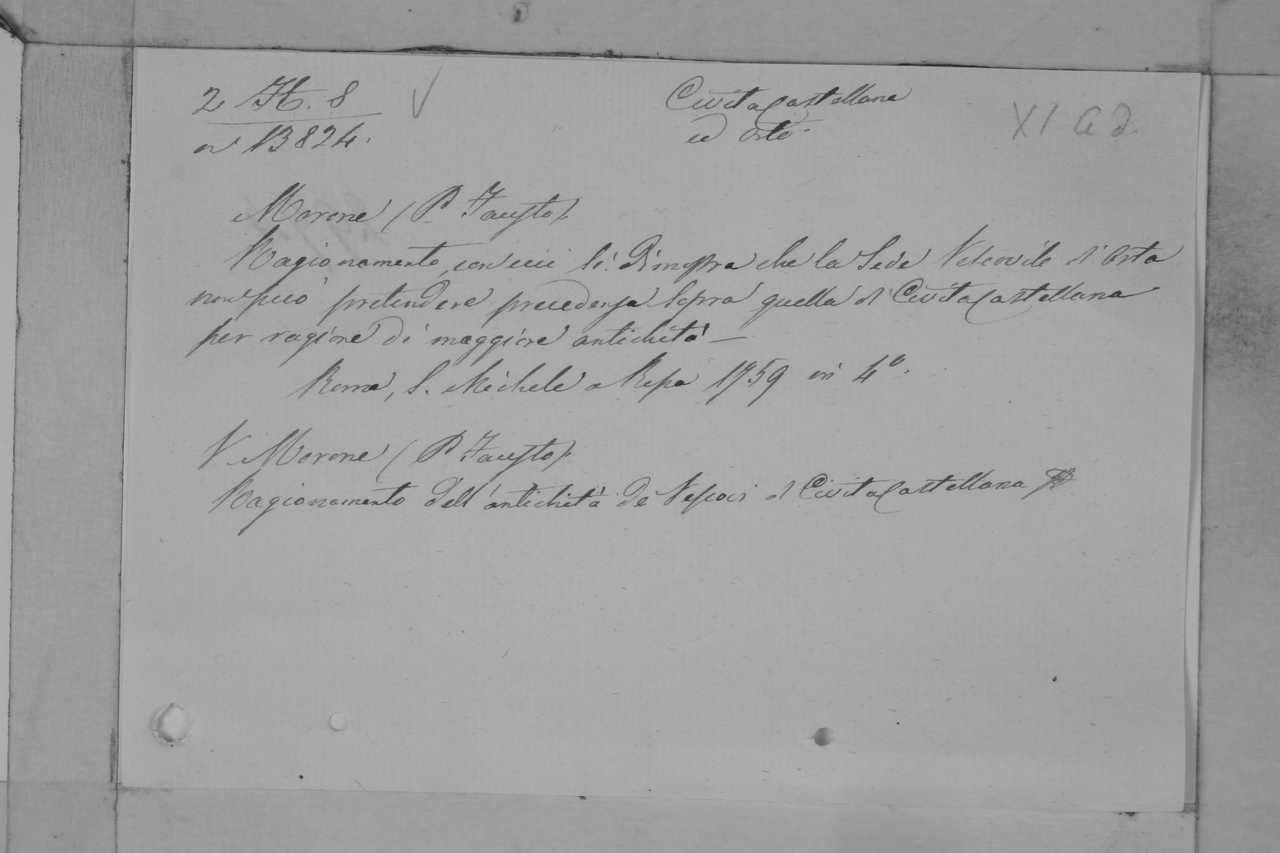 2 H. 8
n° 13824.
CivitaCastellana
ed Orte.
XI a d.
Morone (P. Fausto)
Ragionamento, con cui si dimostra che la Sede Vescovile d'Orta
non può pretendere precedenza sopra quella di CivitaCastellana
per ragione di maggiore antichità —
Roma, S. Michele a Ripa 1759 in 4°.
V. Morone (P. Fausto)
Ragionamento dell'antichità de' Vescovi di CivitaCastellana